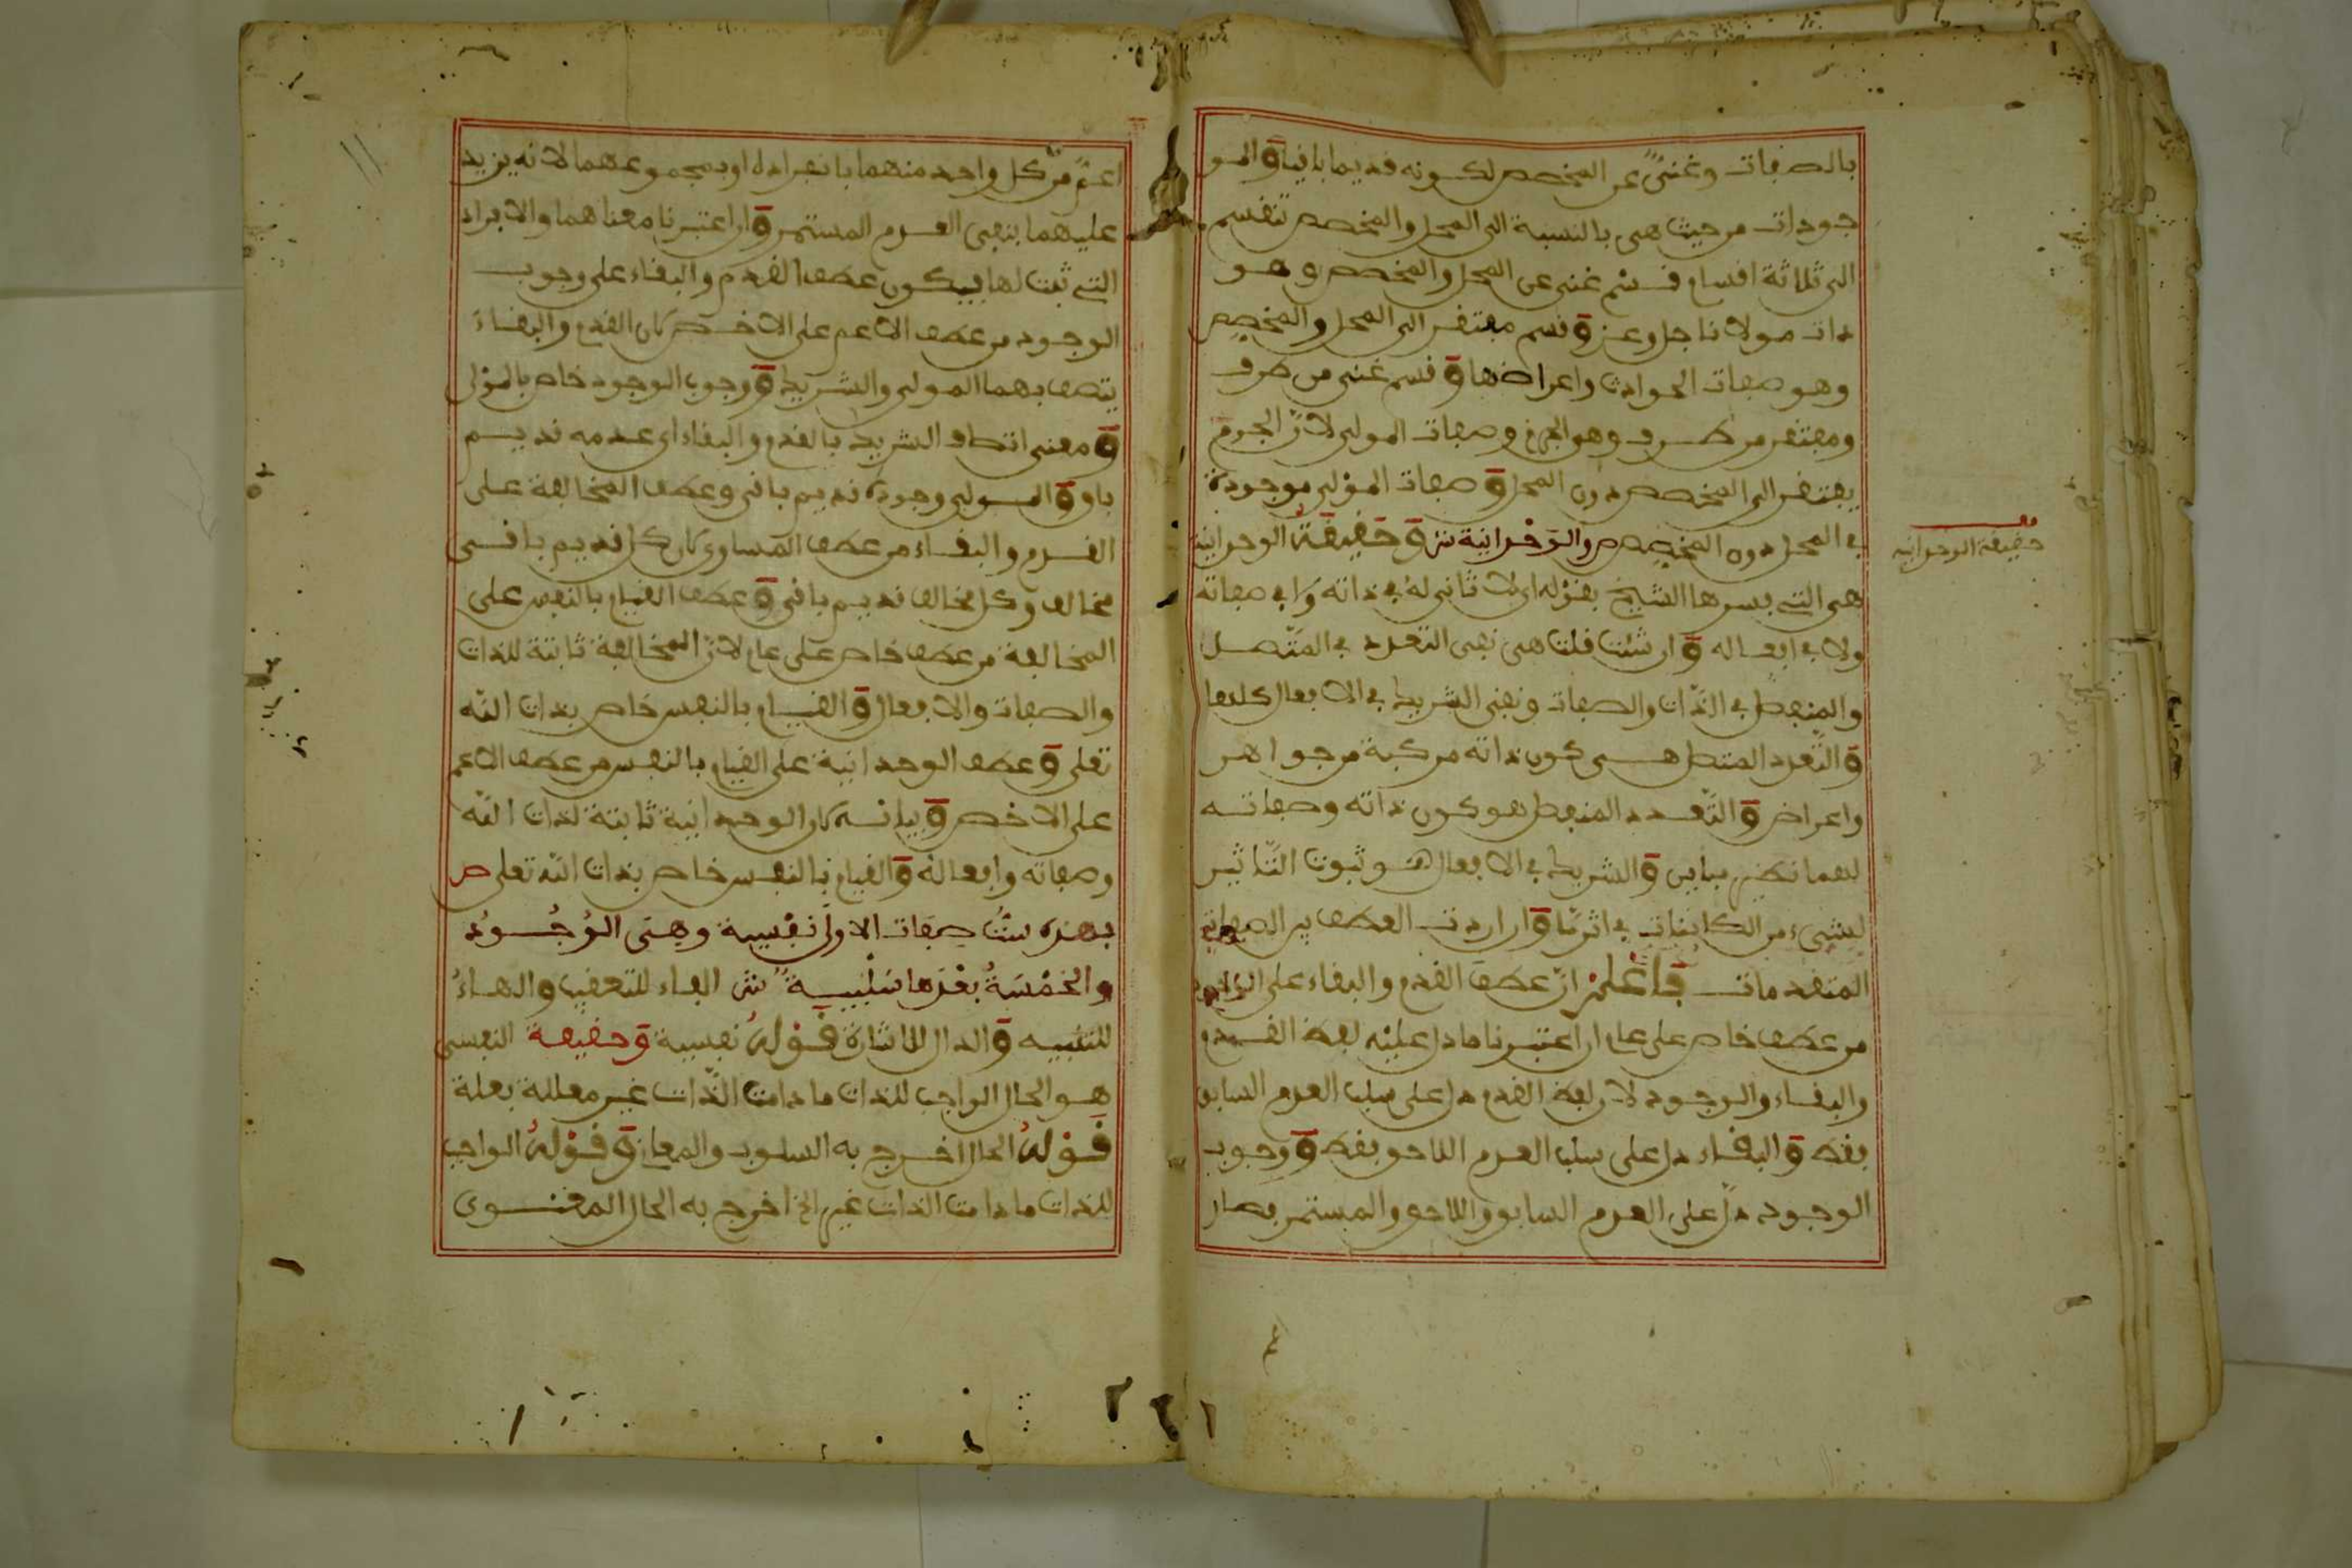 بالصفات وغني عن المخصص لكونه قديما باقيا والمو
جودات من حيث هي بالنسبة الى المحل والمخصص تنقسم
الى ثلاثة اقسام قسم غني عن المحل والمخصص وهو
ذات مولانا جل وعز وقسم مفتقر الى المحل والمخصص
وهو صفات الحوادث واعراضها وقسم غني من طرف
ومفتقر من طرف وهو الجرم وصفات المولى لان الجرم
يفتقر الى المخصص دون المحل وصفات المولى موجودة
في المحل دون المخصص والوحدانية ش وحقيقة الوحدانية
حقيقة الوحدانية
هي التي فسرها الشيخ بقوله اي لا ثاني له في ذاته ولا في صفاته
ولا في افعاله وان شئت قلت هي نفي التعدد في المتصل
والمنفصل في الذات والصفات ونفي الشريك في الافعال كلها
والتعدد المتصل هي كون ذاته مركبة من جواهر
واعراض والتعدد المنفصل هو كون ذاته وصفاته
لهما نظير مباين والشريك في الافعال هو ثبوت التاثير
لشيء من الكاينات في اثر ما وان اردت العطف بين الصفات
المتقدمات فاعلم ان عطف القدم والبقاء على الوجود
من عطف خاص على عام ان اعتبرنا ما دل عليه لفظ القدم
والبقاء والوجود لان لفظ القدم دل على سلب العدم السابق
فقط والبقاء دل على سلب العدم اللاحق فقط ووجوب
الوجود دل على العدم السابق واللاحق والمستمر فصار
اعم من كل واحد منهما بانفراده او بمجموعهما لانه يزيد
عليهما بنفي العدم المستمر وان اعتبرنا معناهما والافراد
التي ثبت لها فيكون عطف القدم والبقاء على وجوب
الوجود من عطف الاعم على الاخص لان القدم والبقاء
يتصف بهما المولى والشريك ووجوب الوجود خاص بالمولى
ومعنى اتصاف الشريك بالقدم والبقاء اي عدمه قديم
باق والمولى وجوده قديم باقي وعطف المخالفة على
القدم والبقاء من عطف المساوي لان كل قديم باقي
مخالف وكل مخالف قديم باقي وعطف القيام بالنفس على
المخالفة من عطف خاص على عام لان المخالفة ثابتة للذات
والصفات والافعال والقيام بالنفس خاص بذات الله
تعلى وعطف الوحدانية على القيام بالنفس من عطف الاعم
على الاخص وبيانه لان الوحدانية ثابتة لذات الله
وصفاته وافعاله والقيام بالنفس خاص بذات الله تعلى ص
فهذه ست صفات الاولى نفسية وهي الوجود
والخمسة بعدها سلبية ش الفاء للتعقيب والهاء
للتنبيه والذال للاشارة قوله نفسية وحقيقة النفسي
هو الحال الواجب للذات ما دامت الذات غير معللة بعلة
قوله الحال اخرج به السلوب والمعاني وقوله الواجب
للذات ما دامت الذات غير الخ اخرج به الحال المعنوي